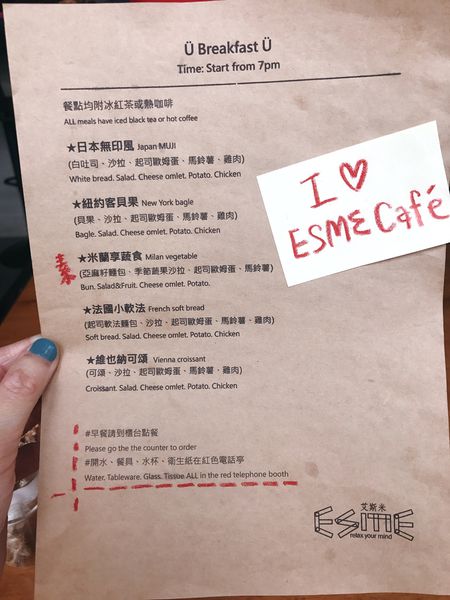 Ü Breakfast Ü
Time: Start from 7pm
餐點均附冰紅茶或熱咖啡
ALL meals have iced black tea or hot coffee
★日本無印風 Japan MUJI
(白吐司、沙拉、起司歐姆蛋、馬鈴薯、雞肉)
White bread. Salad. Cheese omlet. Potato. Chicken
★紐約客貝果 New York bagle
(貝果、沙拉、起司歐姆蛋、馬鈴薯、雞肉)
Bagle. Salad. Cheese omlet. Potato. Chicken
I ♡
ESME Café
素
★米蘭享蔬食 Milan vegetable
(亞麻籽麵包、季節蔬果沙拉、起司歐姆蛋、馬鈴薯)
Bun. Salad&Fruit. Cheese omlet. Potato.
★法國小軟法 French soft bread
(起司軟法麵包、沙拉、起司歐姆蛋、馬鈴薯、雞肉)
Soft bread. Salad. Cheese omlet. Potato. Chicken
★維也納可頌 Vienna croissant
(可頌、沙拉、起司歐姆蛋、馬鈴薯、雞肉)
Croissant. Salad. Cheese omlet. Potato. Chicken
#早餐請到櫃台點餐
Please go the the counter to order
#開水、餐具、水杯、衛生紙在紅色電話亭
Water. Tableware. Glass. Tissue ALL in the red telephone booth
艾斯米
ESME
relax your mind